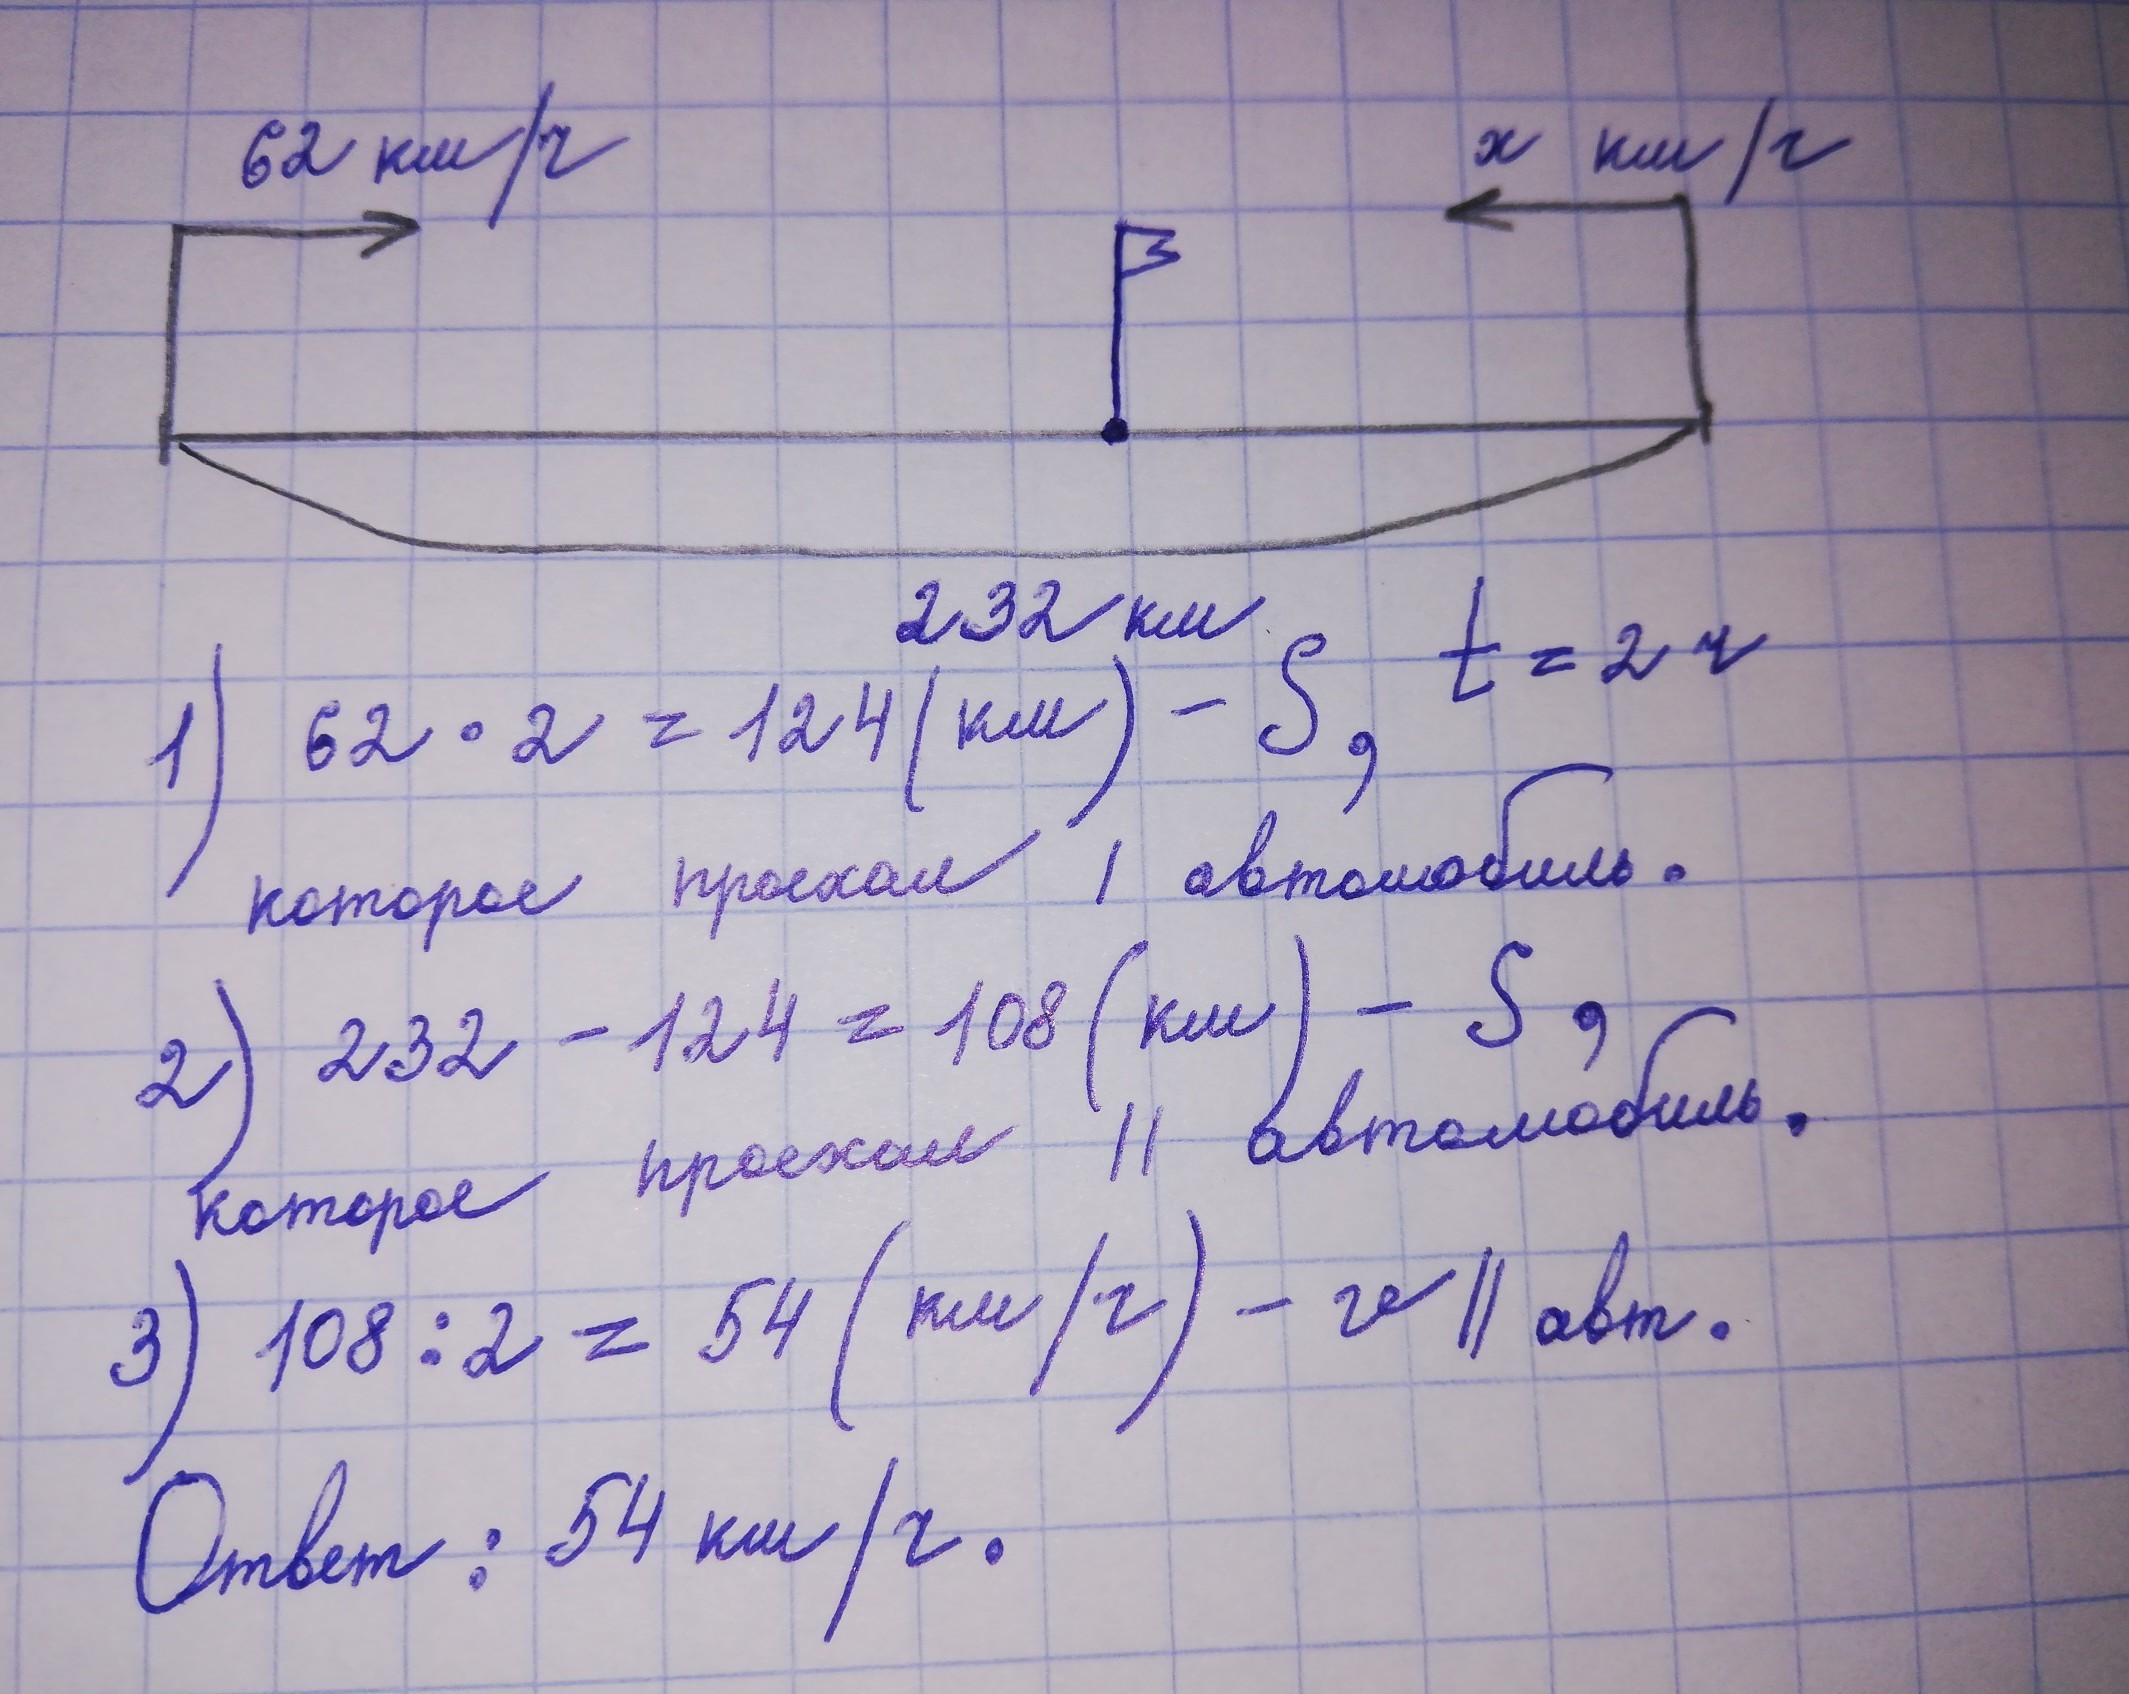 62 км/ч х км/ч
232 км
t = 2 ч
1) 62 · 2 = 124 (км) - S,
которое проехал I автомобиль.
2) 232 - 124 = 108 (км) - S,
которое проехал II автомобиль.
3) 108 : 2 = 54 (км/ч) - v II авт.
Ответ: 54 км/ч.